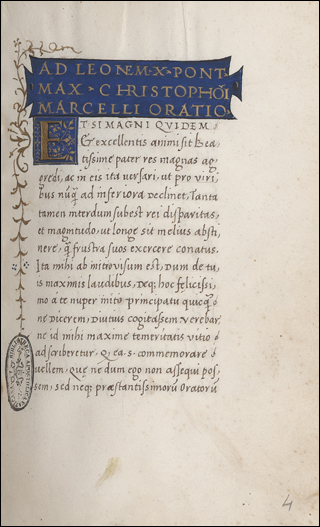 AD LEONEM·X·PONT
MAX·CHRISTOPHORI
MARCELLI ORATIO
ETSI MAGNI QUIDEM
Et excellentis animi sit Bea-
tissime pater res magnas ag-
gredi, ac in eis ita versari, ut pro viri-
bus nūq̄ ad inferiora declinet, Tanta
tamen interdum subest rei disparitas,
et magnitudo, ut longe sit melius absti-
nere, q̄ frustra suos exercere conatus.
Ita mihi ab initio visum est, dum de tu-
is maximis laudibus, deq; hoc felicissi-
mo a te nuper inito principatu quicq̄
ne dicerem, Diutius cogitassem verebar,
ne id mihi maxime temeritatis vitio
adscriberetur, Q, ea.s. commemorare
vellem, Que ne dum ego non assequi pos-
sem, sed neq; præstantissimorū Oratorū
4